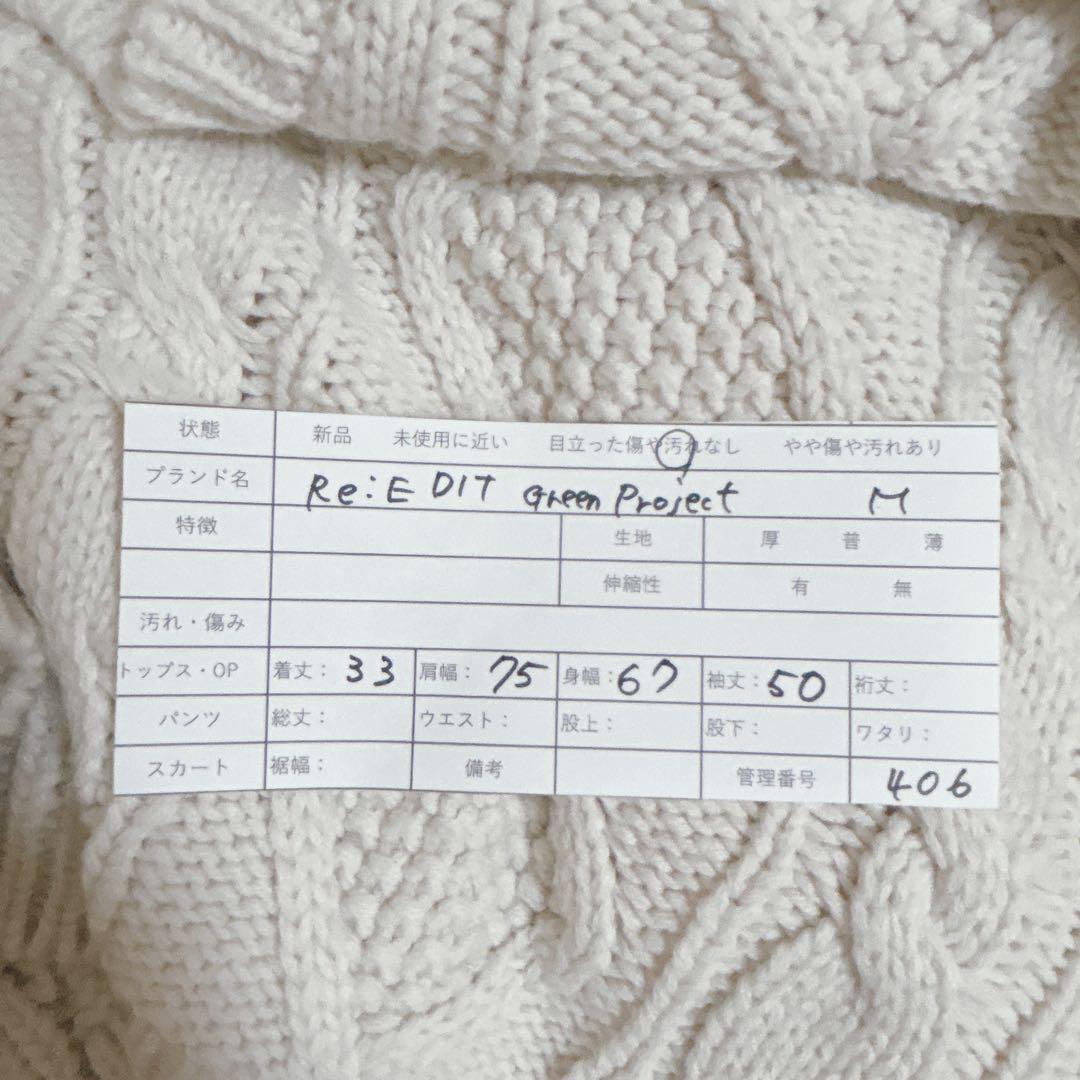 状態 新品 未使用に近い 目立った傷や汚れなし やや傷や汚れあり
ブランド名 Re:EDIT Green Project M
特徴 生地 厚 普 薄
伸縮性 有 無
汚れ・傷み
トップス・OP 着丈: 33 肩幅: 75 身幅: 67 袖丈: 50 裄丈:
パンツ 総丈: ウエスト: 股上: 股下: ワタリ:
スカート 裾幅: 備考 管理番号 406